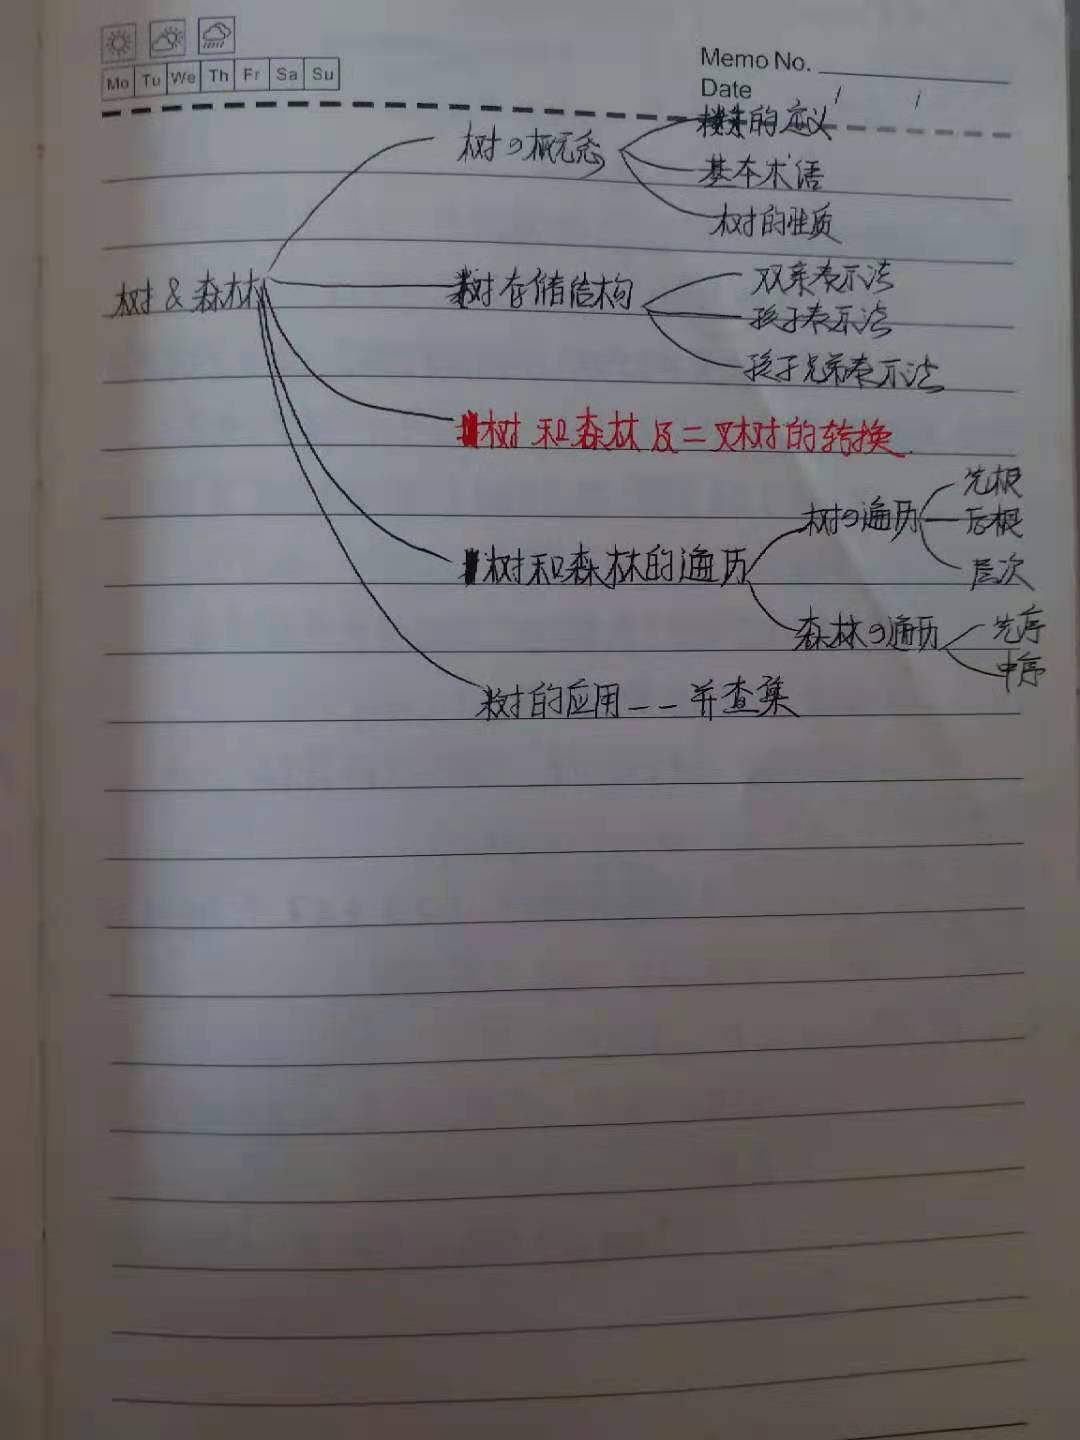 Mo Tu We Th Fr Sa Su
Memo No.
Date / /
树の概念
树的定义
基本术语
树的性质
树 & 森林
树存储结构
双亲表示法
孩子表示法
孩子兄弟表示法
树和森林及二叉树的转换
树和森林的遍历
树の遍历
先根
后根
层次
森林の遍历
先序
中序
树的应用——并查集